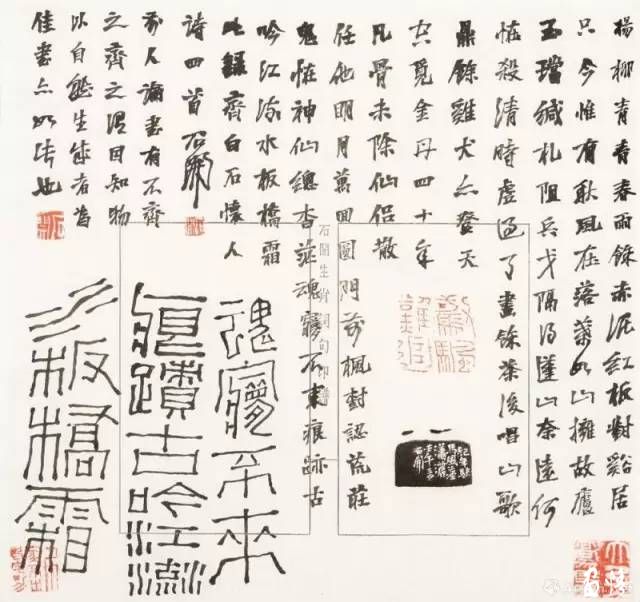 楊柳青青春雨餘赤泥紅板對谿居
只今惟有耿風在落葉如山擁故廬
玉璫緘札阻兵戈隔得蓬山奈遠何
恠殺清時虛過了畫餘茶後唱山歌
鼎餘雞犬亦登天
空覓金丹四十年
凡骨未除仙侶散
任他明月萬回圓門前楓樹認荒莊
鬼恠神仙總杳茫魂寱不來痕跡古
吟江流水板橋霜
此錄齊白石懷人
詩四首石開
前人論書有不齊
之齊之謂因知物
以自能生成者為
佳書亦如法也
石開生肖詞句印譜
魂寱不來
痕蹟古吟江流
水板橋霜